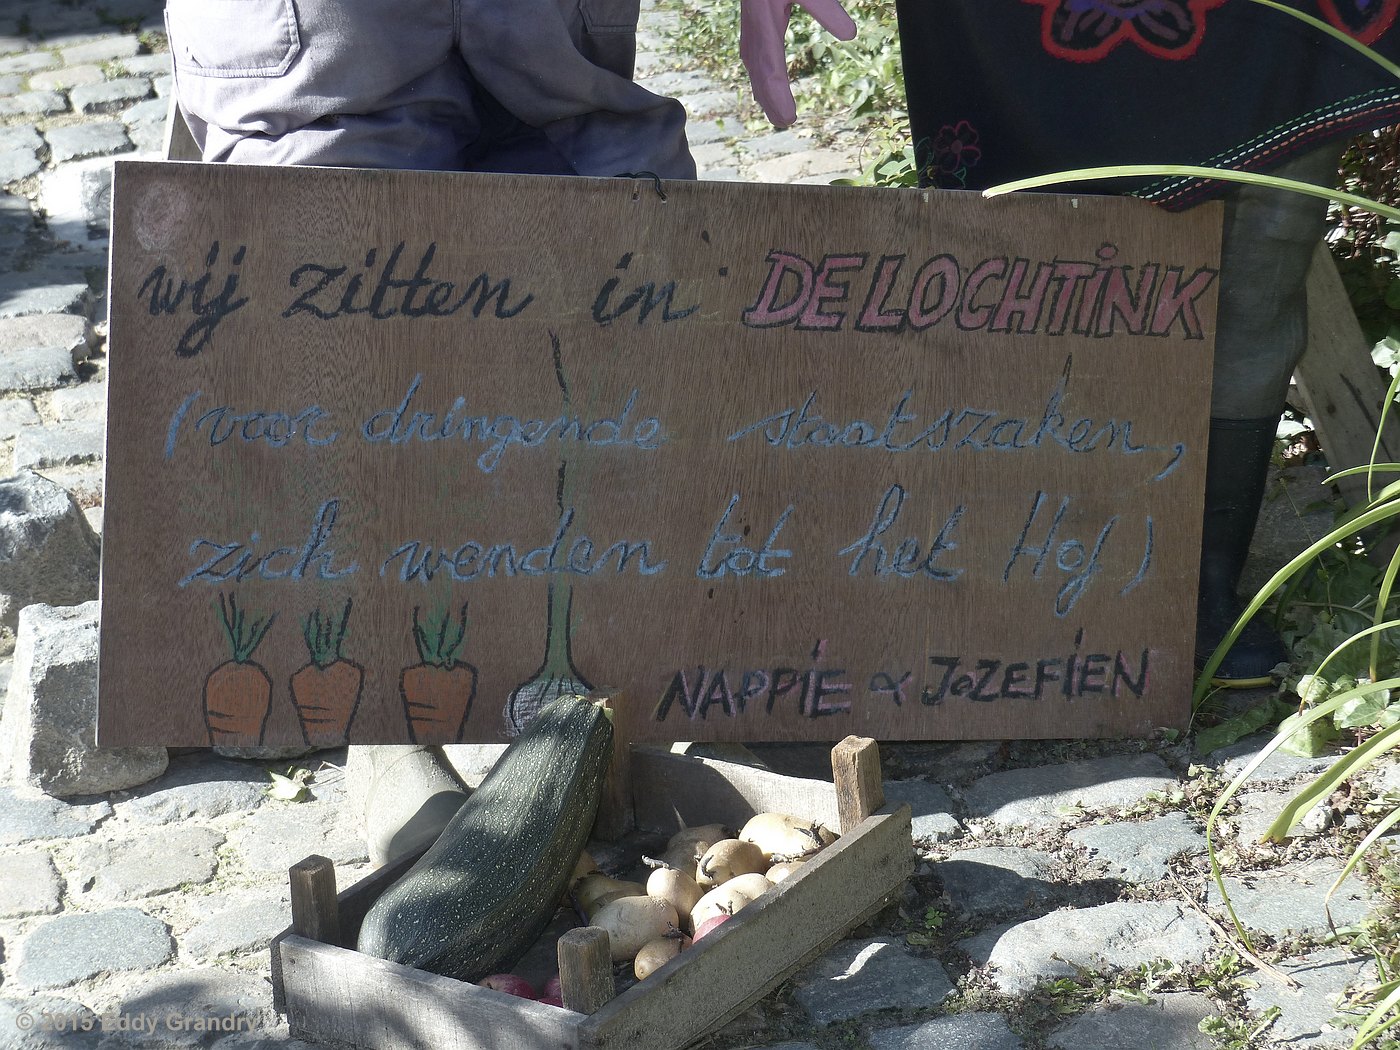 wij zitten in DE LOCHTINK
(voor dringende staatszaken,
zich wenden tot het Hof)
NAPPIE & JOZEFIEN
© 2015 Eddy Grandry